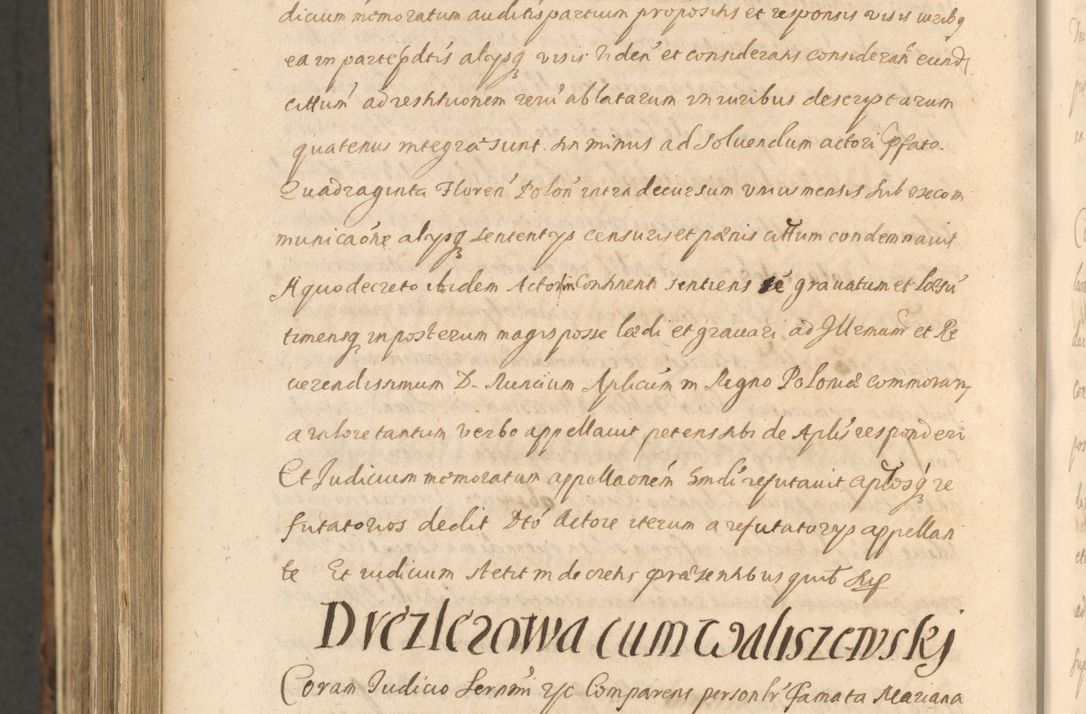 dicium memoratum auditis partium propositis et responsis visis iuribq
ea in parte pdtis alysq visis viden et considerans consideran eund
cittum ad restitutionem reru ablatarum in iuribus descriptarum
quatenus integra sunt sin minus ad soluendum actori pfato.
Quadraginta Floren Polon intra decursum unius mensis sub excom
municaone alysq sententys censuris et pænis cittum condemnauit
A quo decreto ibidem Actor in continenti sentiens se grauatum et læsu
timensq in posterum magis posse lædi et grauari ad Illrmum et Re
uerendissimum D. Nuncium Aplicum in Regno Poloniæ commoran
a valore tantum verbo appellauit petens sibi de Aplis responderi
Et Iudicium memoratum appellaonem smdi refutauit aptosq re
futatorios dedit Dto Actore iterum a refutatorys appellan
te Et iudicium stetit in decretis præsentibus quib
Drezlerowa cum Waliszewskj
Coram Iudicio Sernmi zc Comparens personlr Famata Mariana